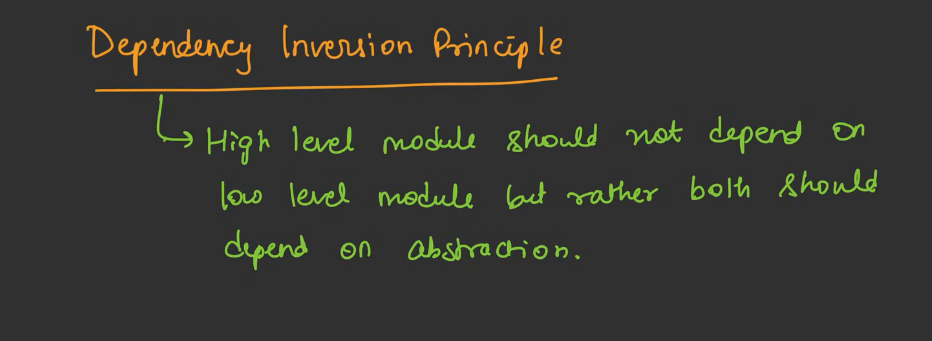 Dependency Inversion Principle
High level module should not depend on
low level module but rather both should
depend on abstraction.